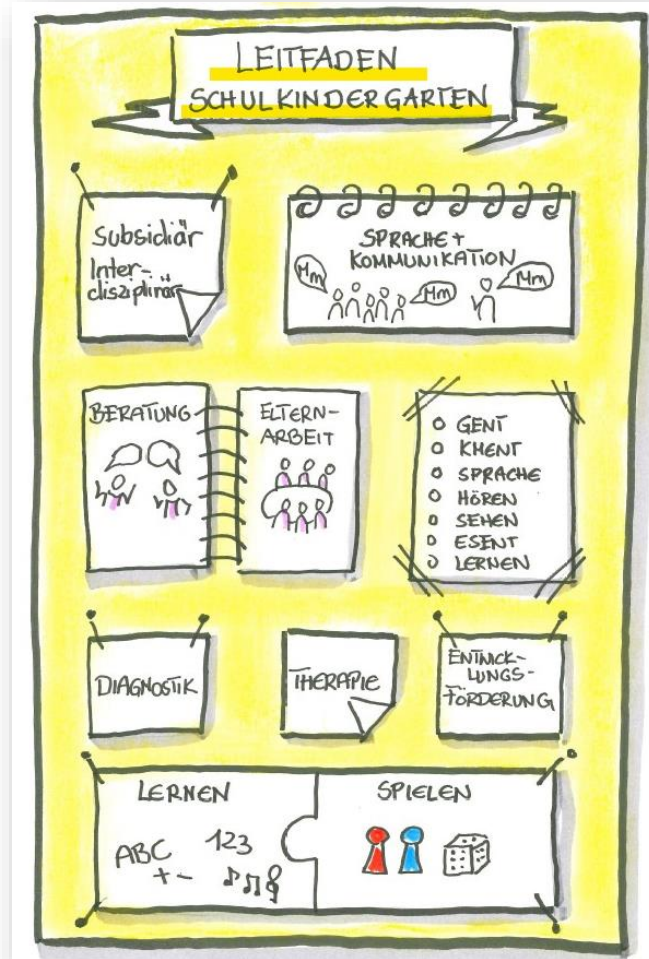 LEITFADEN
SCHULKINDERGARTEN
Subsidiär
Inter-
disziplinär
SPRACHE +
KOMMUNIKATION
Mm
Mm
Mm
BERATUNG
ELTERN-
ARBEIT
GENT
KMENT
SPRACHE
HÖREN
SEHEN
ESENT
LERNEN
DIAGNOSTIK
THERAPIE
ENTWICK-
LUNGS-
FÖRDERUNG
LERNEN
ABC 123
+ -
SPIELEN